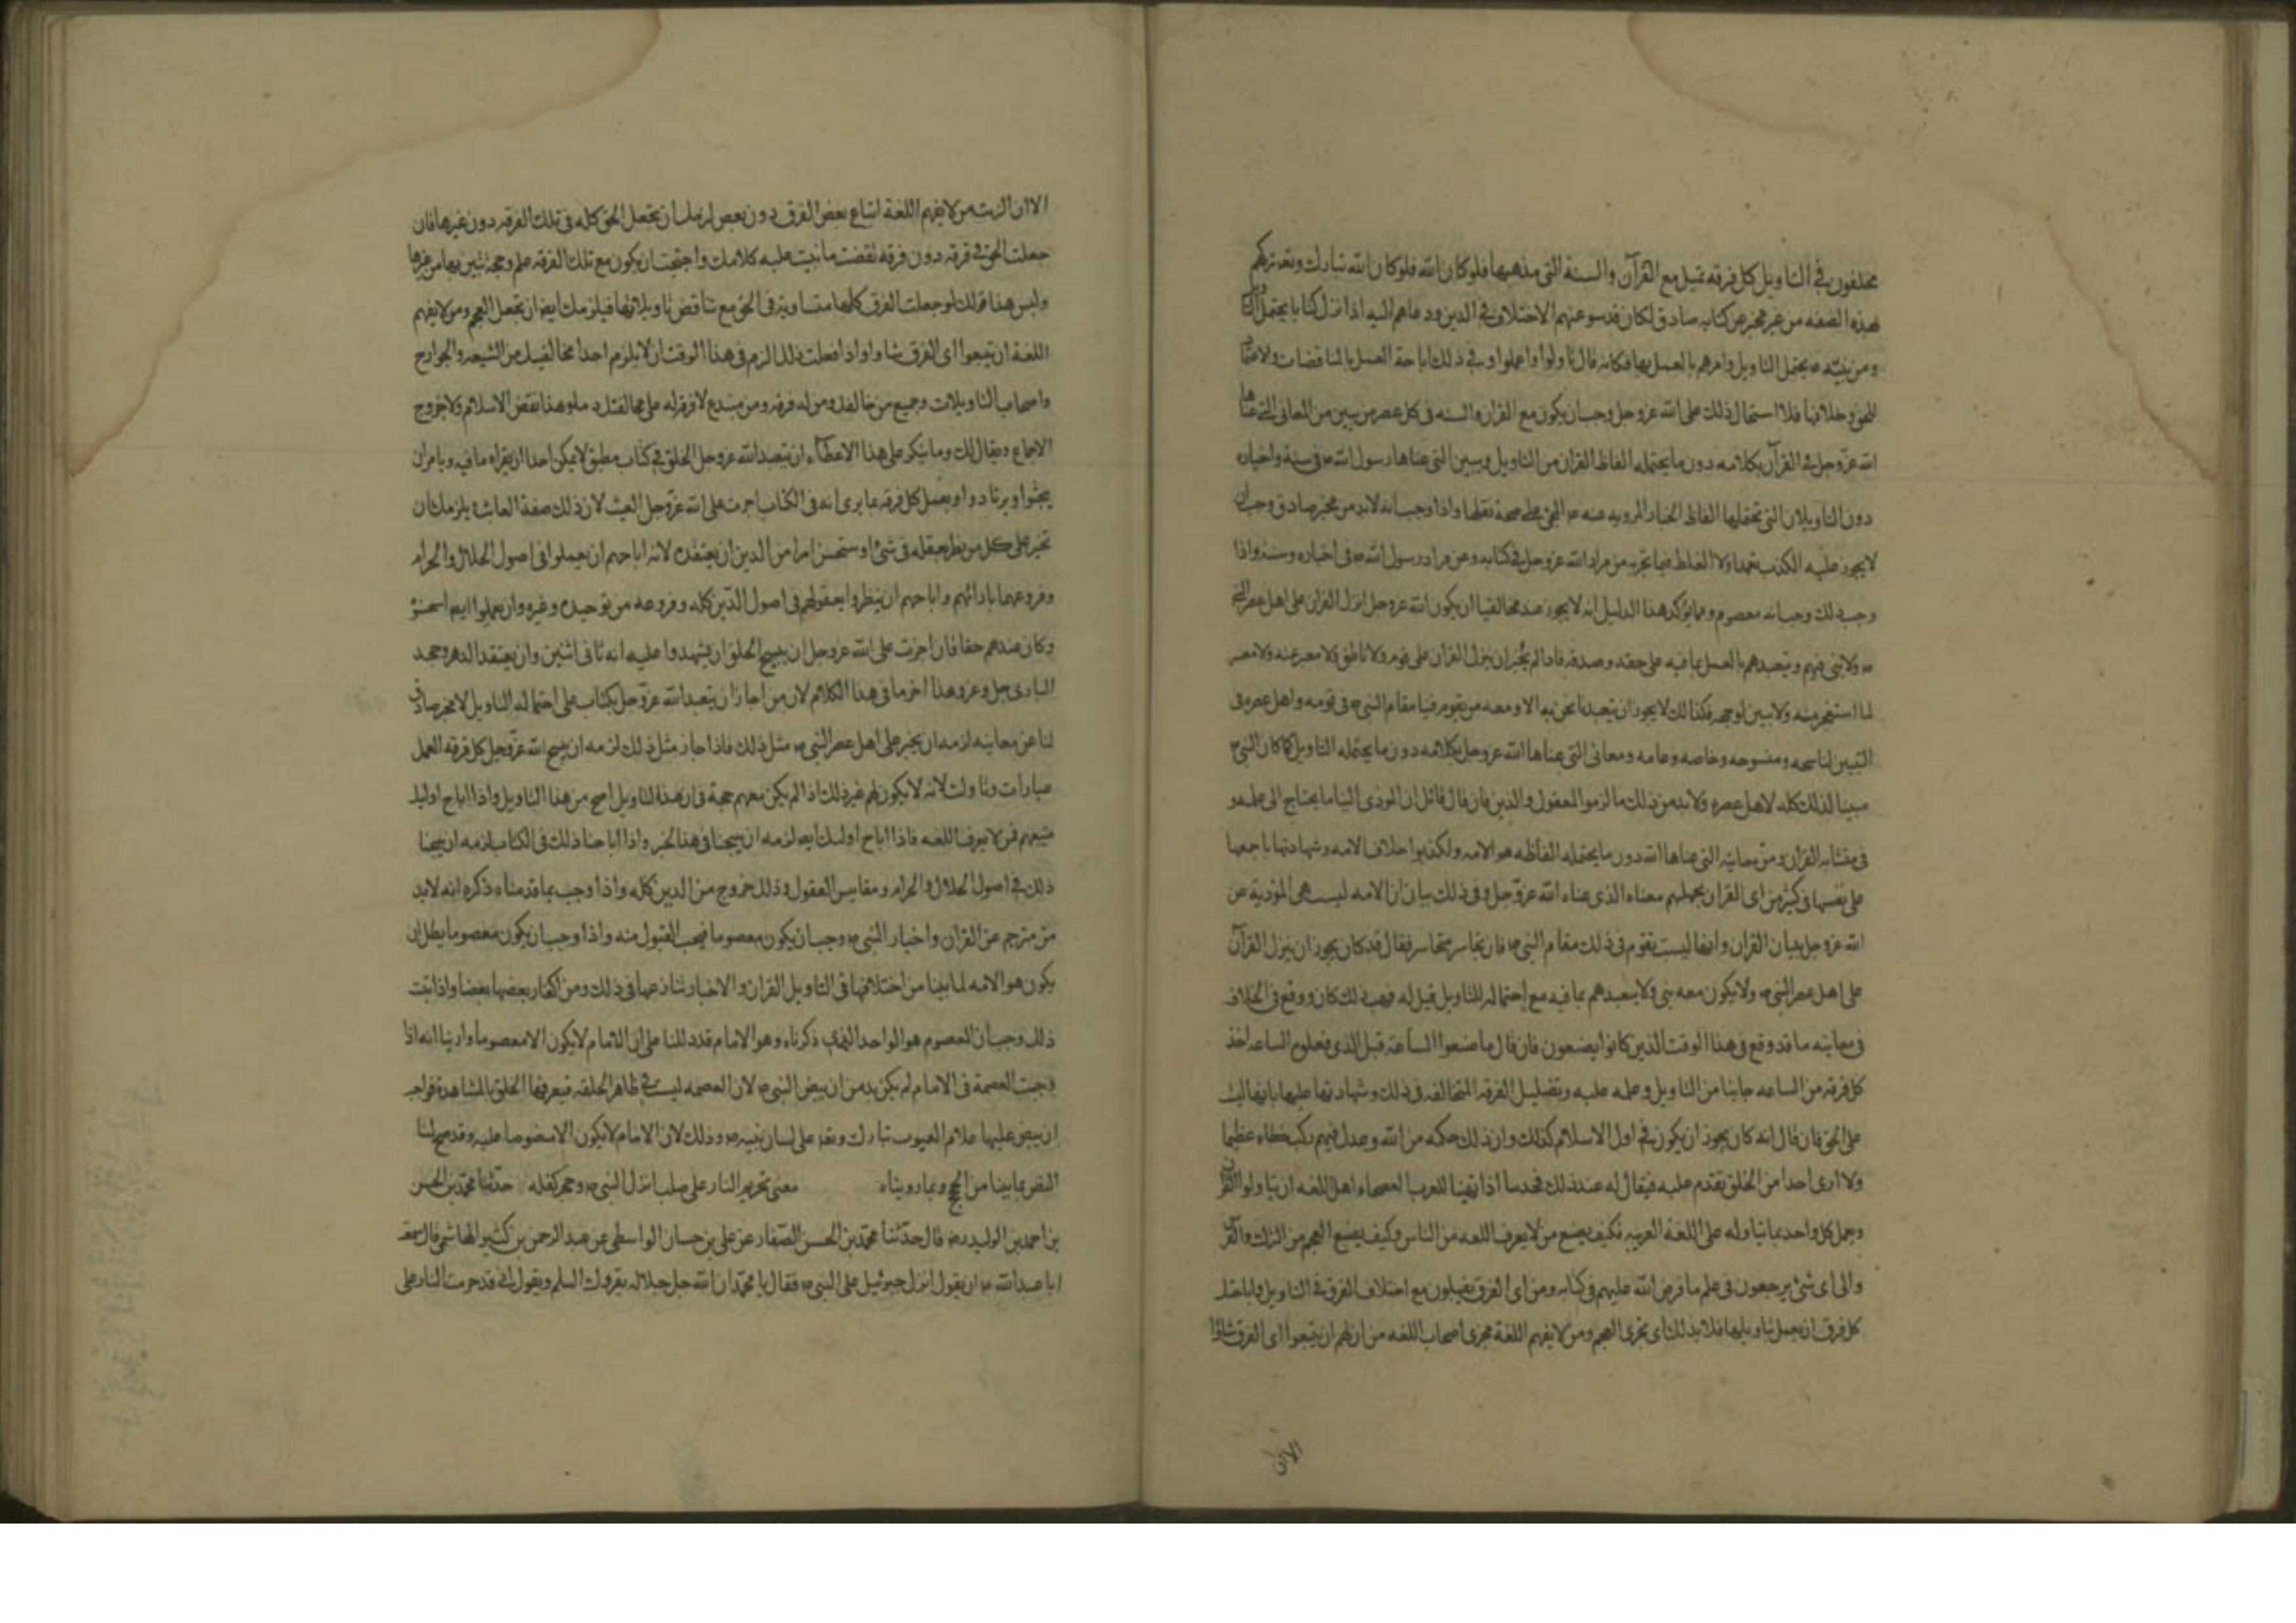 مختلفون في التاويل كل فرقه تميل مع القرآن والسنة التي مذهبها فلو كان الله فلو كان الله تبارك وتعـ تركهم
بهذه الصفه من غير مخبر عن كتابه صادق لكان قد سوغهم الاختلاف في الدين ودعاهم اليه اذا نزل كتابا يحتمل التاويل
ومن نبيه ص يحتمل التاويل وامرهم بالعمل بها فكانه قال تاولوا واعملوا وفي ذلك اباحة العمل بالمتناقضات والاعتماد
للحق وخلافها فلما استحال ذلك على الله عز وجل وجب ان يكون مع القران والسنه في كل عصر من يبين من المعاني التي عناها
الله عز وجل في القرآن بكلامه دون ما يحتمله الفاظ القران من التاويل ويبين التي عناها رسول الله ص في سنته واخباره
دون التاويلات التي تحتملها الفاظ الخبار المرويه عنه ص المجمع على صحة نقلها واذا وجب انه لابد من مخبر صادق وجب ان
لا يجوز عليه الكذب تعمدا ولا الغلط فيما يخبر به من مراد الله عز وجل في كتابه وعن مراد رسول الله ص في اخباره وسنته واذا
وجب ذلك وجب انه معصوم ومما يؤكد هذا الدليل انه لا يجوز عند مخالفينا ان يكون الله عز وجل انزل القران على اهل عصر النبي
ص ولا نبي فيهم ويتعبدهم بالعمل بما فيه على حقه وصدقه فاذا لم يجز ان ينزل القران على قوم ولا ناطق ولا معبر عنه ولا مفسر
لما استعجم منه ولا مبين لوجهه فكذلك لا يجوز ان يتعبدنا نحن به الا ومعه من يقوم فينا مقام النبي ص في قومه واهل عصره في
التبيين لناسخه ومنسوخه وخاصه وعامه ومعاني التي عناها الله عز وجل بكلامه دون ما يحتمله التاويل كما كان النبي ص
مبينا لذلك كله لاهل عصره ولابد من ذلك ما لزموا المعقول والدين فان قال قائل ان المودى الينا ما يحتاج الى علمه
في متشابه القران ومن معانيه التي عناها الله دون ما يحتمله الفاظه هو الامه ولكذبوا خلاف الامه وشهادتها باجمعها
على نفسها في كثير من اي القران بجهلهم معناه الذي عناه الله عز وجل وفي ذلك بيان ان الامه ليست هي المؤدية عن
الله عز وجل ببيان القران وانها ليست تقوم في ذلك مقام النبي ص فان تجاسر متجاسر فقال قد كان يجوز ان ينزل القرآن
على اهل عصر النبي ص ولا يكون معه نبي ولا يتعبدهم بما فيه مع احتماله للتاويل قيل له فهب ذلك كان ووقع في الخلاف
في معانيه ما قد وقع في هذا الوقت الذين كانوا يصنعون فان قال ما صنعوا الساعة قبل الذي فعلوه الساعه اخذ
كل فرقه من الساعه جانبا من التاويل وعمله عليه وتضليل الفرقه المخالفه في ذلك وشهادتها عليها بانها ليست
على الحق فان قال انه كان يجوز ان يكون في اول الاسلام كذلك وان ذلك حكمه من الله وعدل فيهم ركب خطاء عظيما
ولا ارى احدا من الخلق يقدم عليه فيقال له عند ذلك فحدثنا اذا تهيا للعرب الفصحاء اهل اللغه ان يتاولوا القران
وعمل كل واحد بما يتاوله على اللغة العربيه فكيف يصنع من لا يعرف اللغه من الناس وكيف يصنع العجم من الترك والفرس
والى اي شئ يرجعون في علم ما فرض الله عليهم في كتابه ومن اي الفرق يقبلون مع اختلاف الفرق في التاويل واباحتك
كل فرق ان يعمل بتاويلها فلابد لك اي تجري العجم ومن لا يفهم اللغة مجرى اصحاب اللغه من ان لهم ان يتبعوا اي الفرق شاؤا
الا ان
الا ان الزمت من لا يفهم اللغة اتباع بعض الفرق دون بعض لزمك ان تجعل الحق كله في تلك الفرقه دون غيرها فان
جعلت الحق في فرقه دون فرقة نقضت ما بنيت عليه كلامك واحتجت ان يكون مع تلك الفرقه علم وحجة تبين بها من غيرها
وليس هذا قولك لو جعلت الفرق كلها متساوية في الحق مع تناقض تاويلاتها فيلزمك ايضا ان تجعل العجم ومن لا يفهم
اللغة ان يتبعوا اي الفرق شاءوا واذا فعلت ذلك لزم في هذا الوقت ان لا يلزم احدا مخالفيك من الشيعه والخوارج
واصحاب التاويلات وجميع من خالفك ومن له فرقه ومن مبتدع لا فرقه له على مخالفتك ذما وهذا نقض الاسلام ولا خروج
الاجماع ويقال لك وما ينكر على هذا الاعطاء ان يتعبد الله عز وجل الخلق في كتاب مطبق لا يمكن احدا ان يقراه ما فيه ويامر ان
يبحثوا ويرتادوا ويعمل كل فرقه بما يرى انه في الكتاب اجزت على الله عز وجل العبث لان ذلك صفة العابث ويلزمك ان
تجيز على كل من نظر بعقله في شئ او ستحسن امرا من الدين ان يعتقده لانه اباحهم ان يعملوا في اصول الحلال والحرام
وفروعهما بارائهم واباحهم ان ينظروا بعقولهم في اصول الدين كله وفروعه من توحيده وغيره وان يعملوا ايضا بما استحسنوه
وكان عندهم حقا فان اجزت على الله عز وجل ان يبيح الخلق ان يشهدوا عليه انه ثاني اثنين وان يعتقد الدهر وجحد
البارى جل وعز وهذا اخر ما في هذا الكلام لان من اجاز ان يتعبد الله عز وجل بكتاب على احتماله التاويل لا مخبر صادق
لنا عن معانيه لزمه ان يجيز على اهل عصر النبي ص مثل ذلك فاذا جاز مثل ذلك لزمه ان يبيح الله عز وجل كل فرقه العمل
عبارات وتاولت لانه لا يكون لهم غير ذلك اذا لم يكن معهم حجة في ان هذا التاويل اصح من هذا التاويل واذا اباح اوليك
متبعهم فمن لا يعرف اللغه فاذا اباح اوليك ايضا لزمه ان يبيحنا في هذا الخبر واذا اباحنا ذلك في الكتاب لزمه ان يبيحنا
ذلك في اصول الحلال والحرام ومقاييس العقول وذلك خروج من الدين كله واذا وجب بما قدمناه ذكره انه لابد
من مترجم عن القران واخبار النبي ص وجب ان يكون معصوما فيجب القبول منه واذا وجب ان يكون معصوما بطل ان
يكون هو الامه لما بينا من اختلافها في التاويل القران والاخبار تنازعها في ذلك ومن اكفار بعضها بعضا واذا ثبت
ذلك وجب ان المعصوم هو الواحد الذي ذكرناه وهو الامام قد دللنا على ان الامام لا يكون الا معصوما وارينا انه اذا
وجبت العصمة في الامام لم يكن بد من ان ينص النبي ص لان العصمه ليست في ظاهر الخلقه فيعرفها الخلق بالمشاهدة فواجب
ان ينص عليها علام الغيوب تبارك وتعـ على لسان نبيه ص وذلك لان الامام لا يكون الا منصوصا عليه وقد صح لنا
النص بما بينا من الحجج وبما رويناه معنى تحريم النار على صلب انزل النبي ص وحجر كفله حدثنا محمد بن الحسن
بن احمد بن الوليد رضـ قال حدثنا محمد بن الحسن الصفار عن علي بن حسان الواسطى عن عبد الرحمن بن كثير الهاشمي قال سمعت
ابا عبد الله ع ان يقول انزل جبرئيل على النبي ص فقال يا محمد ان الله جل جلاله يقروك السلم ويقول اني قد حرمت النار على